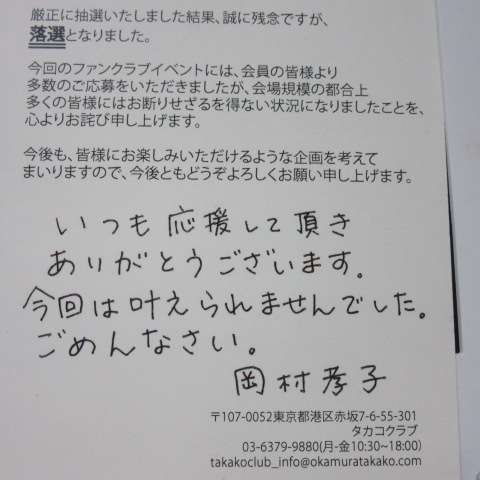 厳正に抽選いたしました結果、誠に残念ですが、
落選となりました。
今回のファンクラブイベントには、会員の皆様より
多数のご応募をいただきましたが、会場規模の都合上
多くの皆様にはお断りせざるを得ない状況になりましたことを、
心よりお詫び申し上げます。
今後も、皆様にお楽しみいただけるような企画を考えて
まいりますので、今後ともどうぞよろしくお願い申し上げます。
いつも応援して頂き
ありがとうございます。
今回は叶えられませんでした。
ごめんなさい。
岡村孝子
〒107-0052東京都港区赤坂7-6-55-301
タカコクラブ
03-6379-9880(月-金10:30~18:00)
takakoclub_info@okamuratakako.com